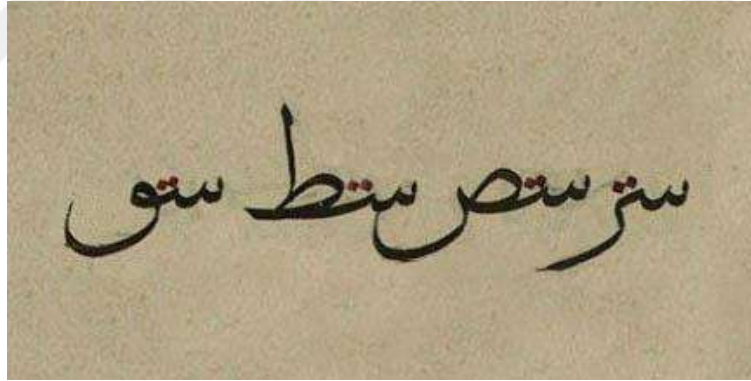 ستر ستص ستط ستو